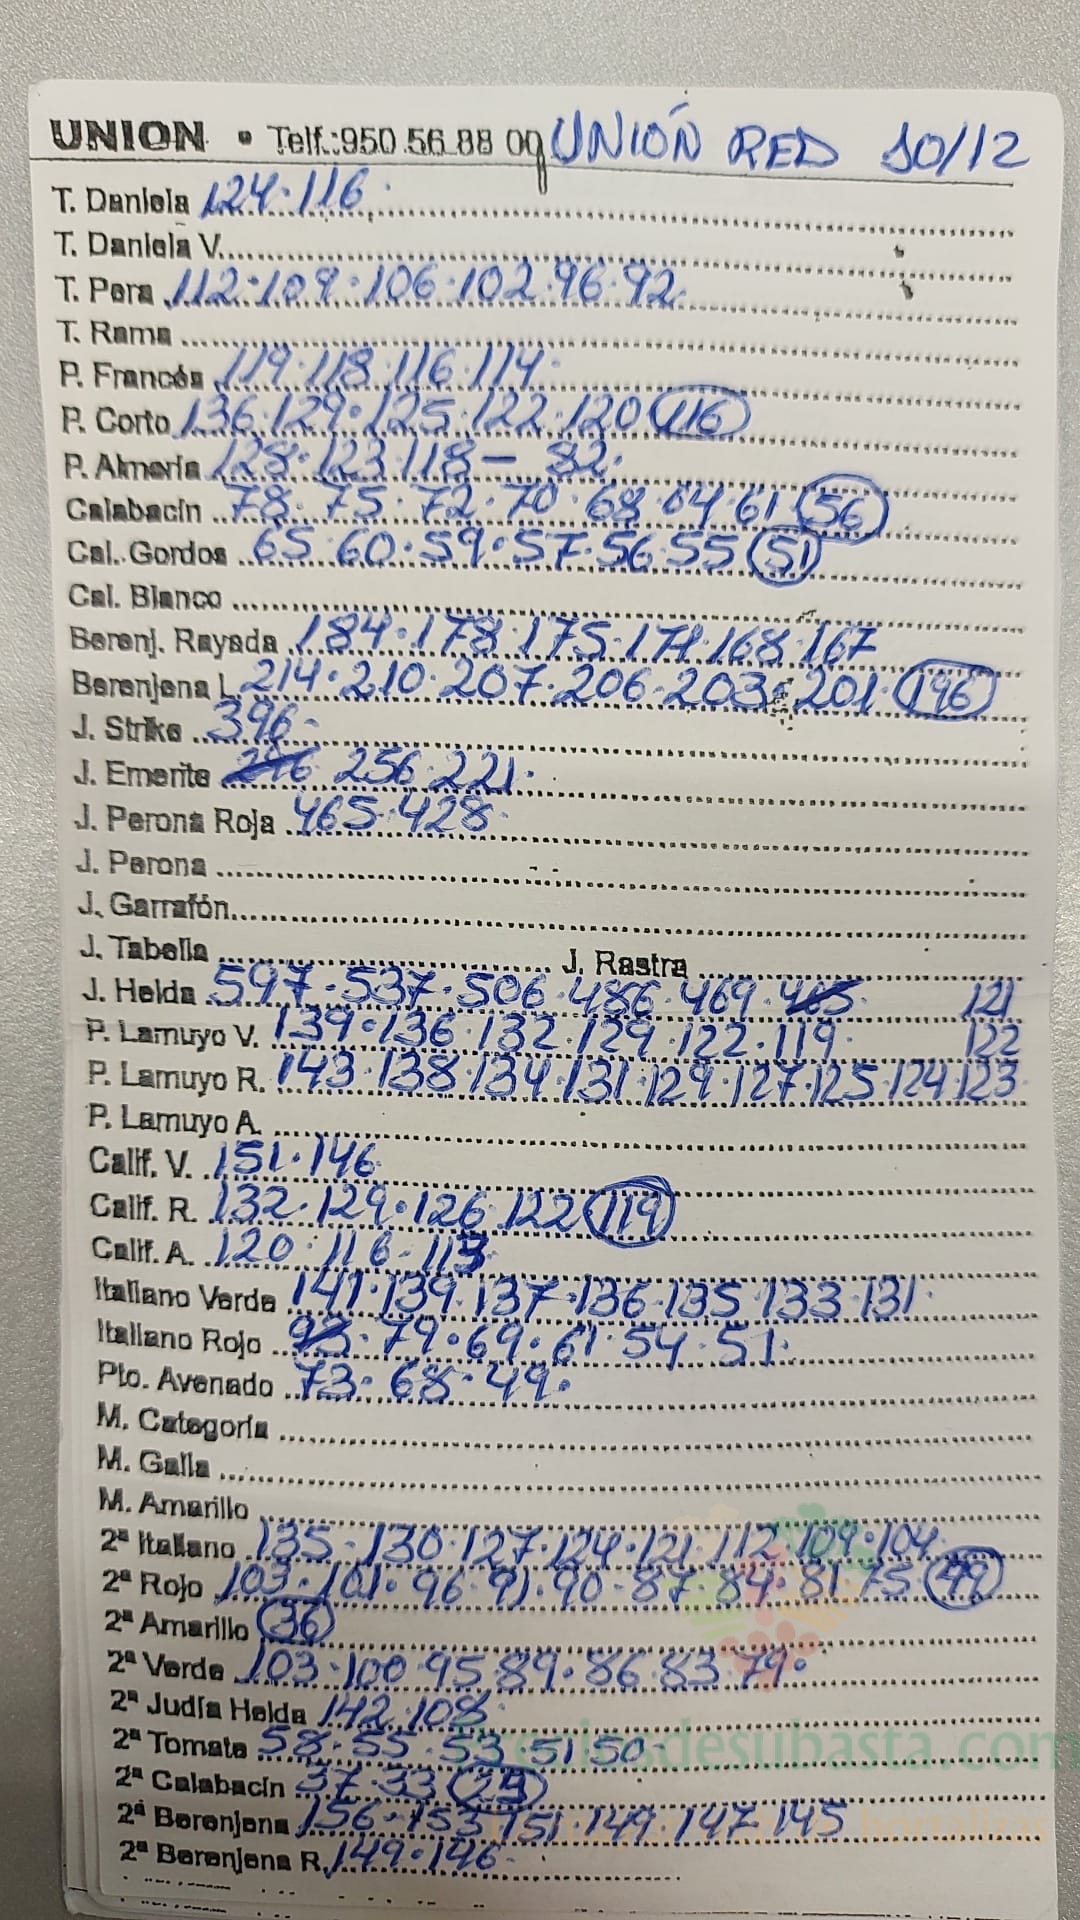 UNION • Telf.:950.56.88.09 UNIÓN RED 10/12
T. Daniela 124.116.
T. Daniela V.
T. Pera 112.109.106.102.96.92.
T. Rama
P. Francés 119.118.116.114.
P. Corto 136.129.125.122.120 116
P. Almería 128.123.118 - 82.
Calabacín 78.75.72.70.68.64.61 56
Cal. Gordos 65.60.59.57.56.55 51
Cal. Blanco
Berenj. Rayada 184.178.175.171.168.167
Berenjena L 214.210.207.206.203.201. 196
J. Strike 396.
J. Emerite 256.221.
J. Perona Roja 465.428.
J. Perona
J. Garrafón
J. Tabella J. Rastra
J. Helda 597.537.506.486.469. 121
P. Lamuyo V. 139.136.132.129.122.119. 122
P. Lamuyo R. 143.138.134.131.129.127.125.124 123
P. Lamuyo A.
Calif. V. 151.146
Calif. R. 132.129.126.122 119
Calif. A. 120.116.113
Italiano Verde 141.139.137.136.135.133.131.
Italiano Rojo 93.79.69.61.54.51.
Pto. Avenado 73.68.49.
M. Categoría
M. Galia
M. Amarillo
2ª Italiano 135.130.127.124.121.112.109.104.
2ª Rojo 103.101.96.91.90.87.84.81.75
2ª Amarillo 36
2ª Verde 103.100.95.89.86.83.79.
2ª Judía Helda 142.108.
2ª Tomate 58.55.53.51.50.
2ª Calabacín 37.33
2ª Berenjena 156.153.151.149.147.145
2ª Berenjena R. 149.146.
Preciosdesubasta.com
hortalizas